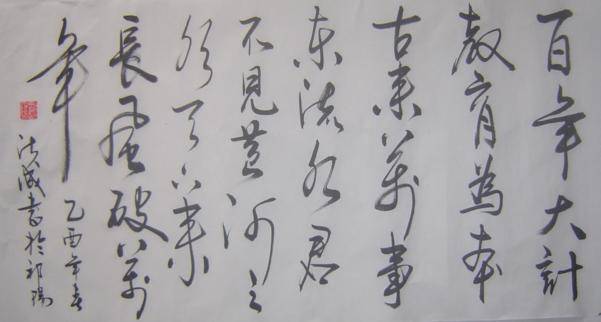 百年大計
教育為本
古来萬事
东流水君
不見黄河之
水天上来
長風破萬
年
乙酉年春
成書於祁陽